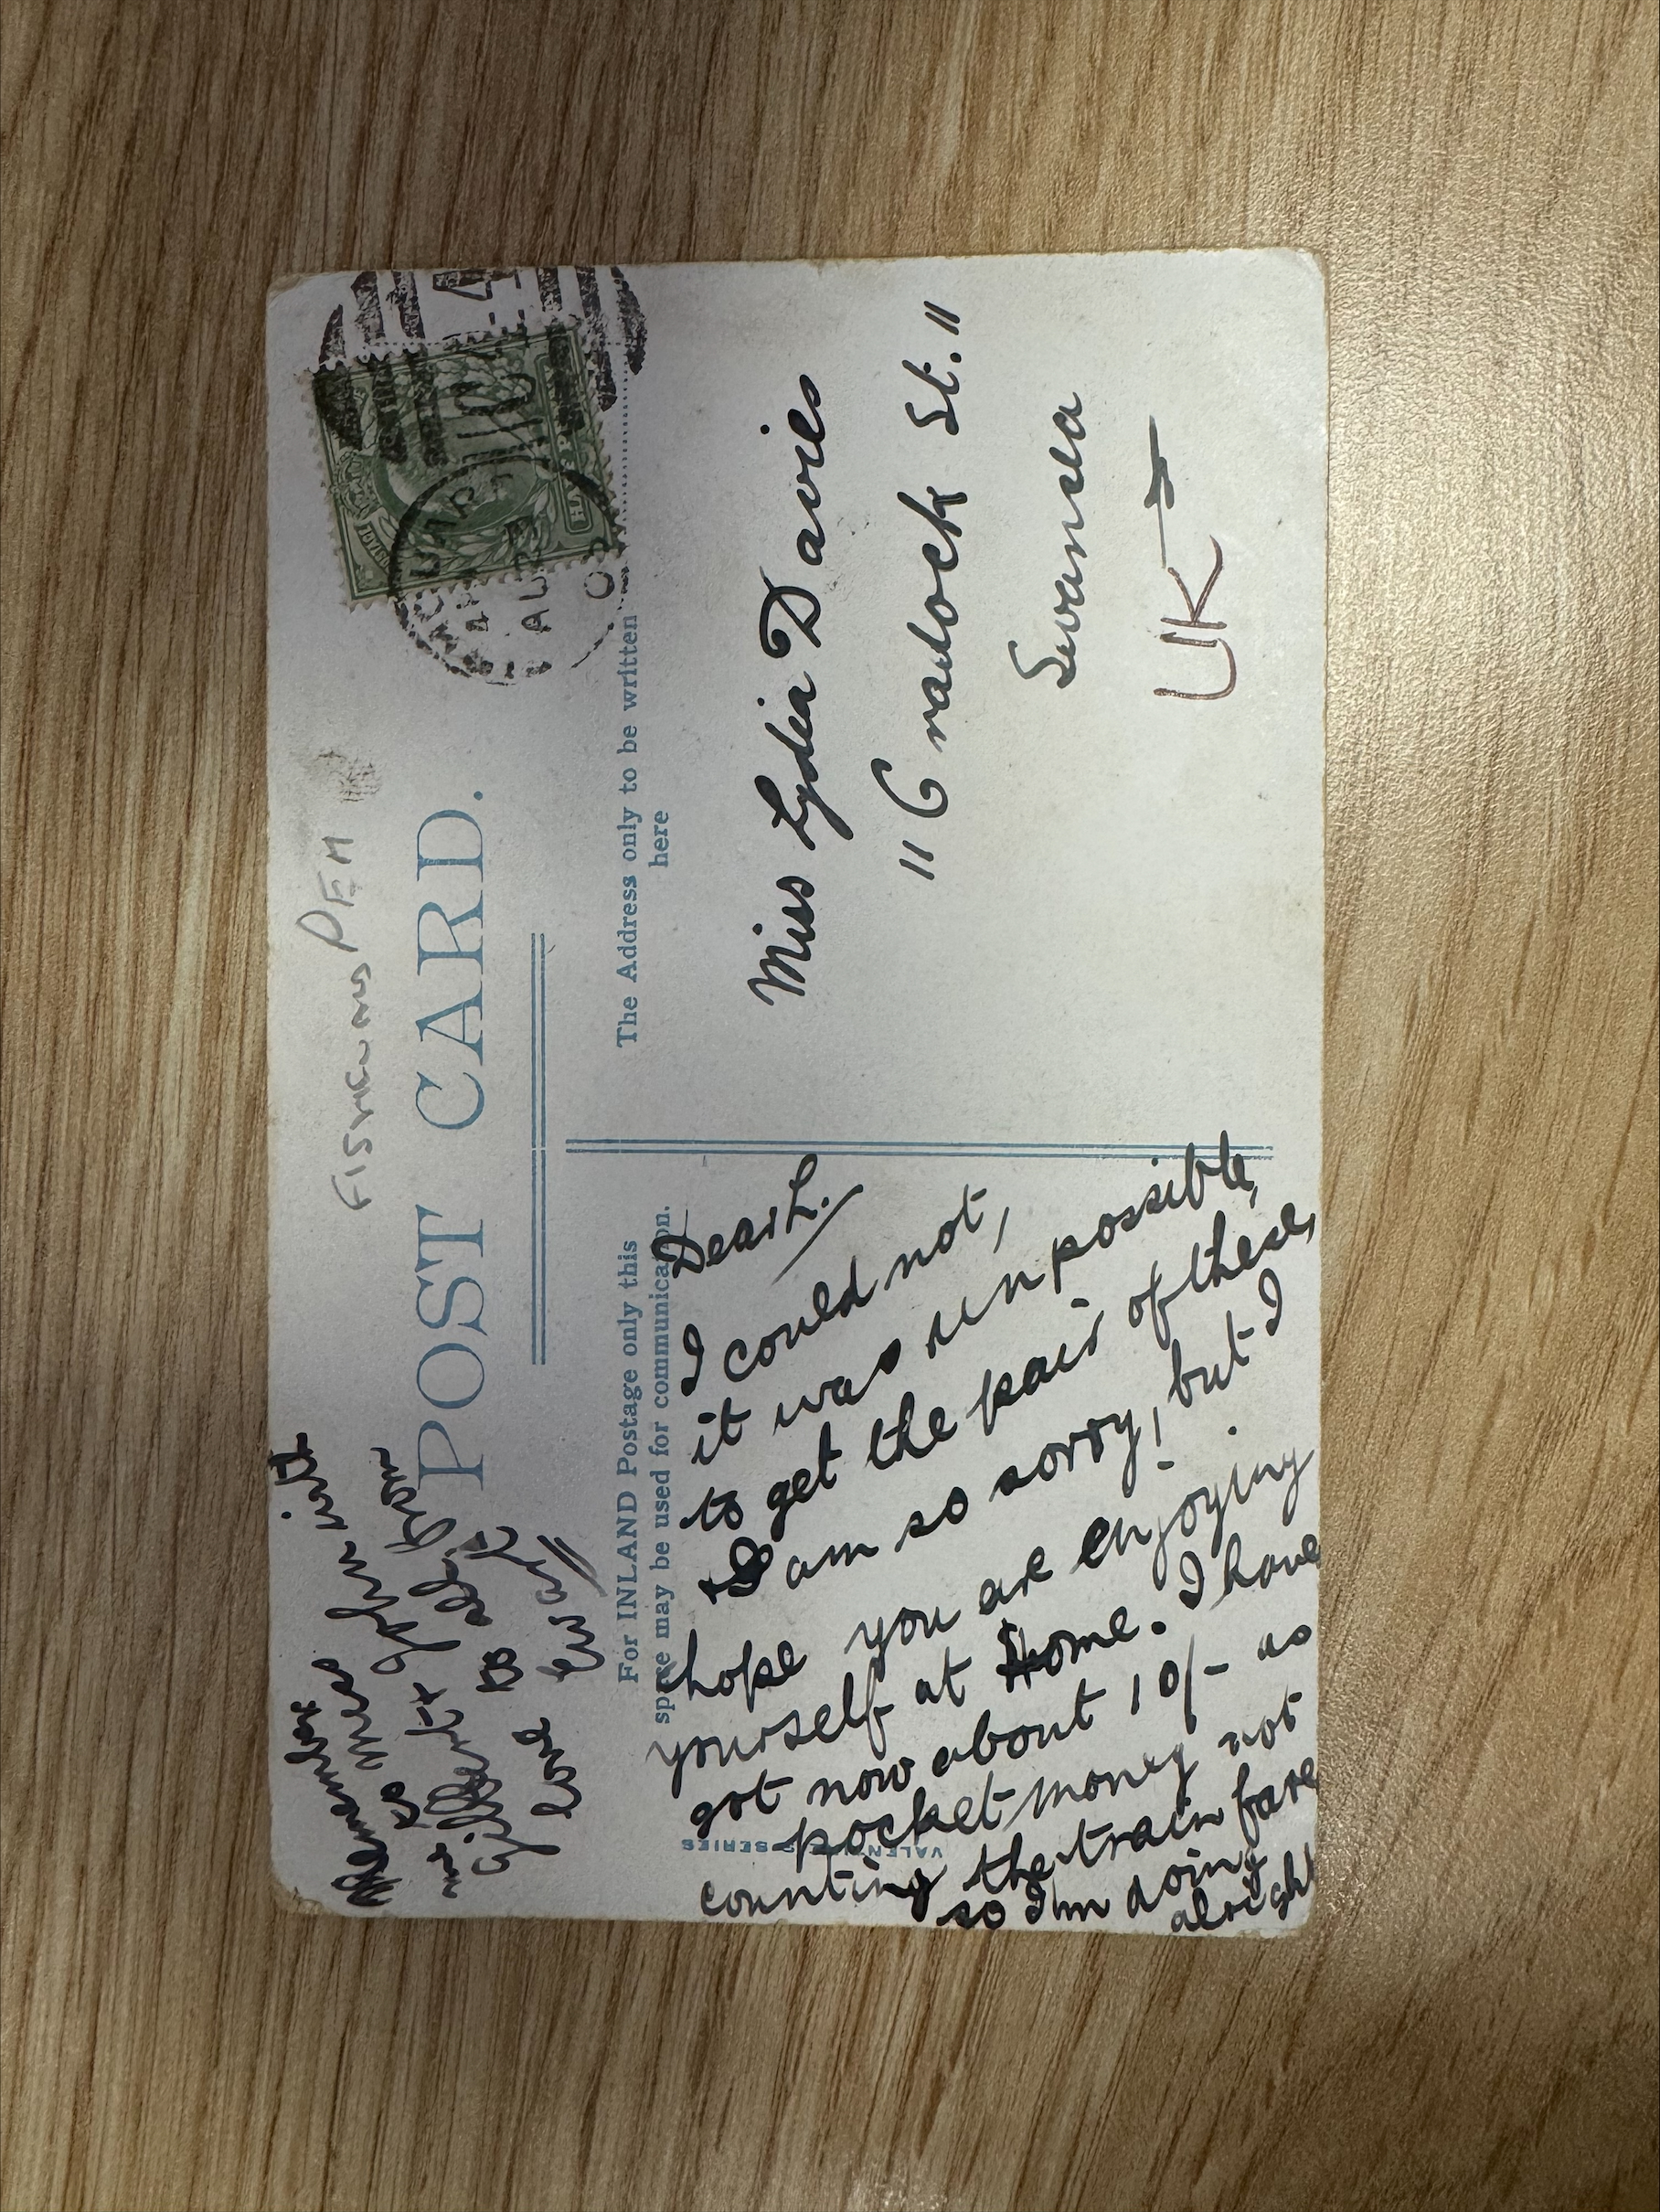 Remember
me to Miss
Gilbert + John with
love to all, from
Ewart
FISHGUARD PEM
POST CARD.
For INLAND Postage only this
space may be used for communication.
The Address only to be written
here
VALENTINES SERIES
Dear L.
I could not,
it was unpossible,
to get the pair of these,
& I am so sorry! but I
hope you are enjoying
yourself at Home. I have
got now about 10/- as
pocket money not
counting the train fare
so I'm doing alright
Miss Lydia Davies
"Cradock St."
Swansea
UK
POSTAGE
HALF PENNY
AU